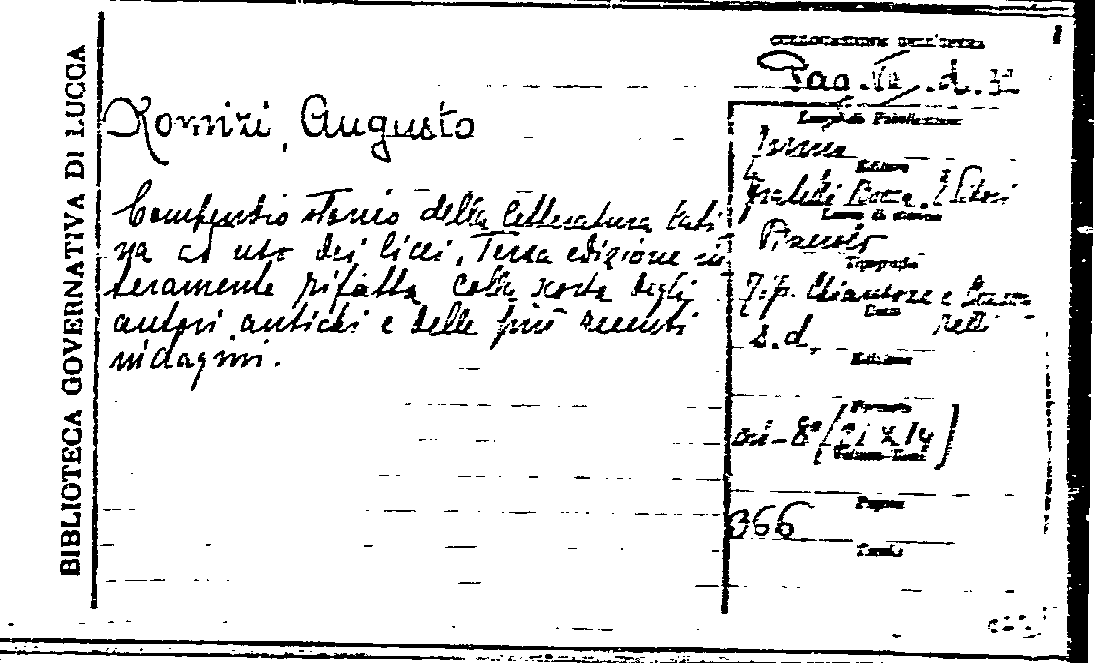 BIBLIOTECA GOVERNATIVA DI LUCCA
COLLOCAZIONE DELL'OPERA
Romizi, Augusto
Compendio storico della letteratura lati
na ad uso dei licei. Terza edizione in
teramente rifatta colla scorta degli
autori antichi e delle più recenti
indagini.
Luogo di Pubblicazione
Torino
Editore
Fratelli Bocca. Editori
Luogo di stampa
Pinerolo
Tipografia
Tip. Chiantore e Masca
relli
Data
s.d.
Edizione
Formato
in-8° (21 X 14)
Volume-Tomi
Pagine
366
Tavole